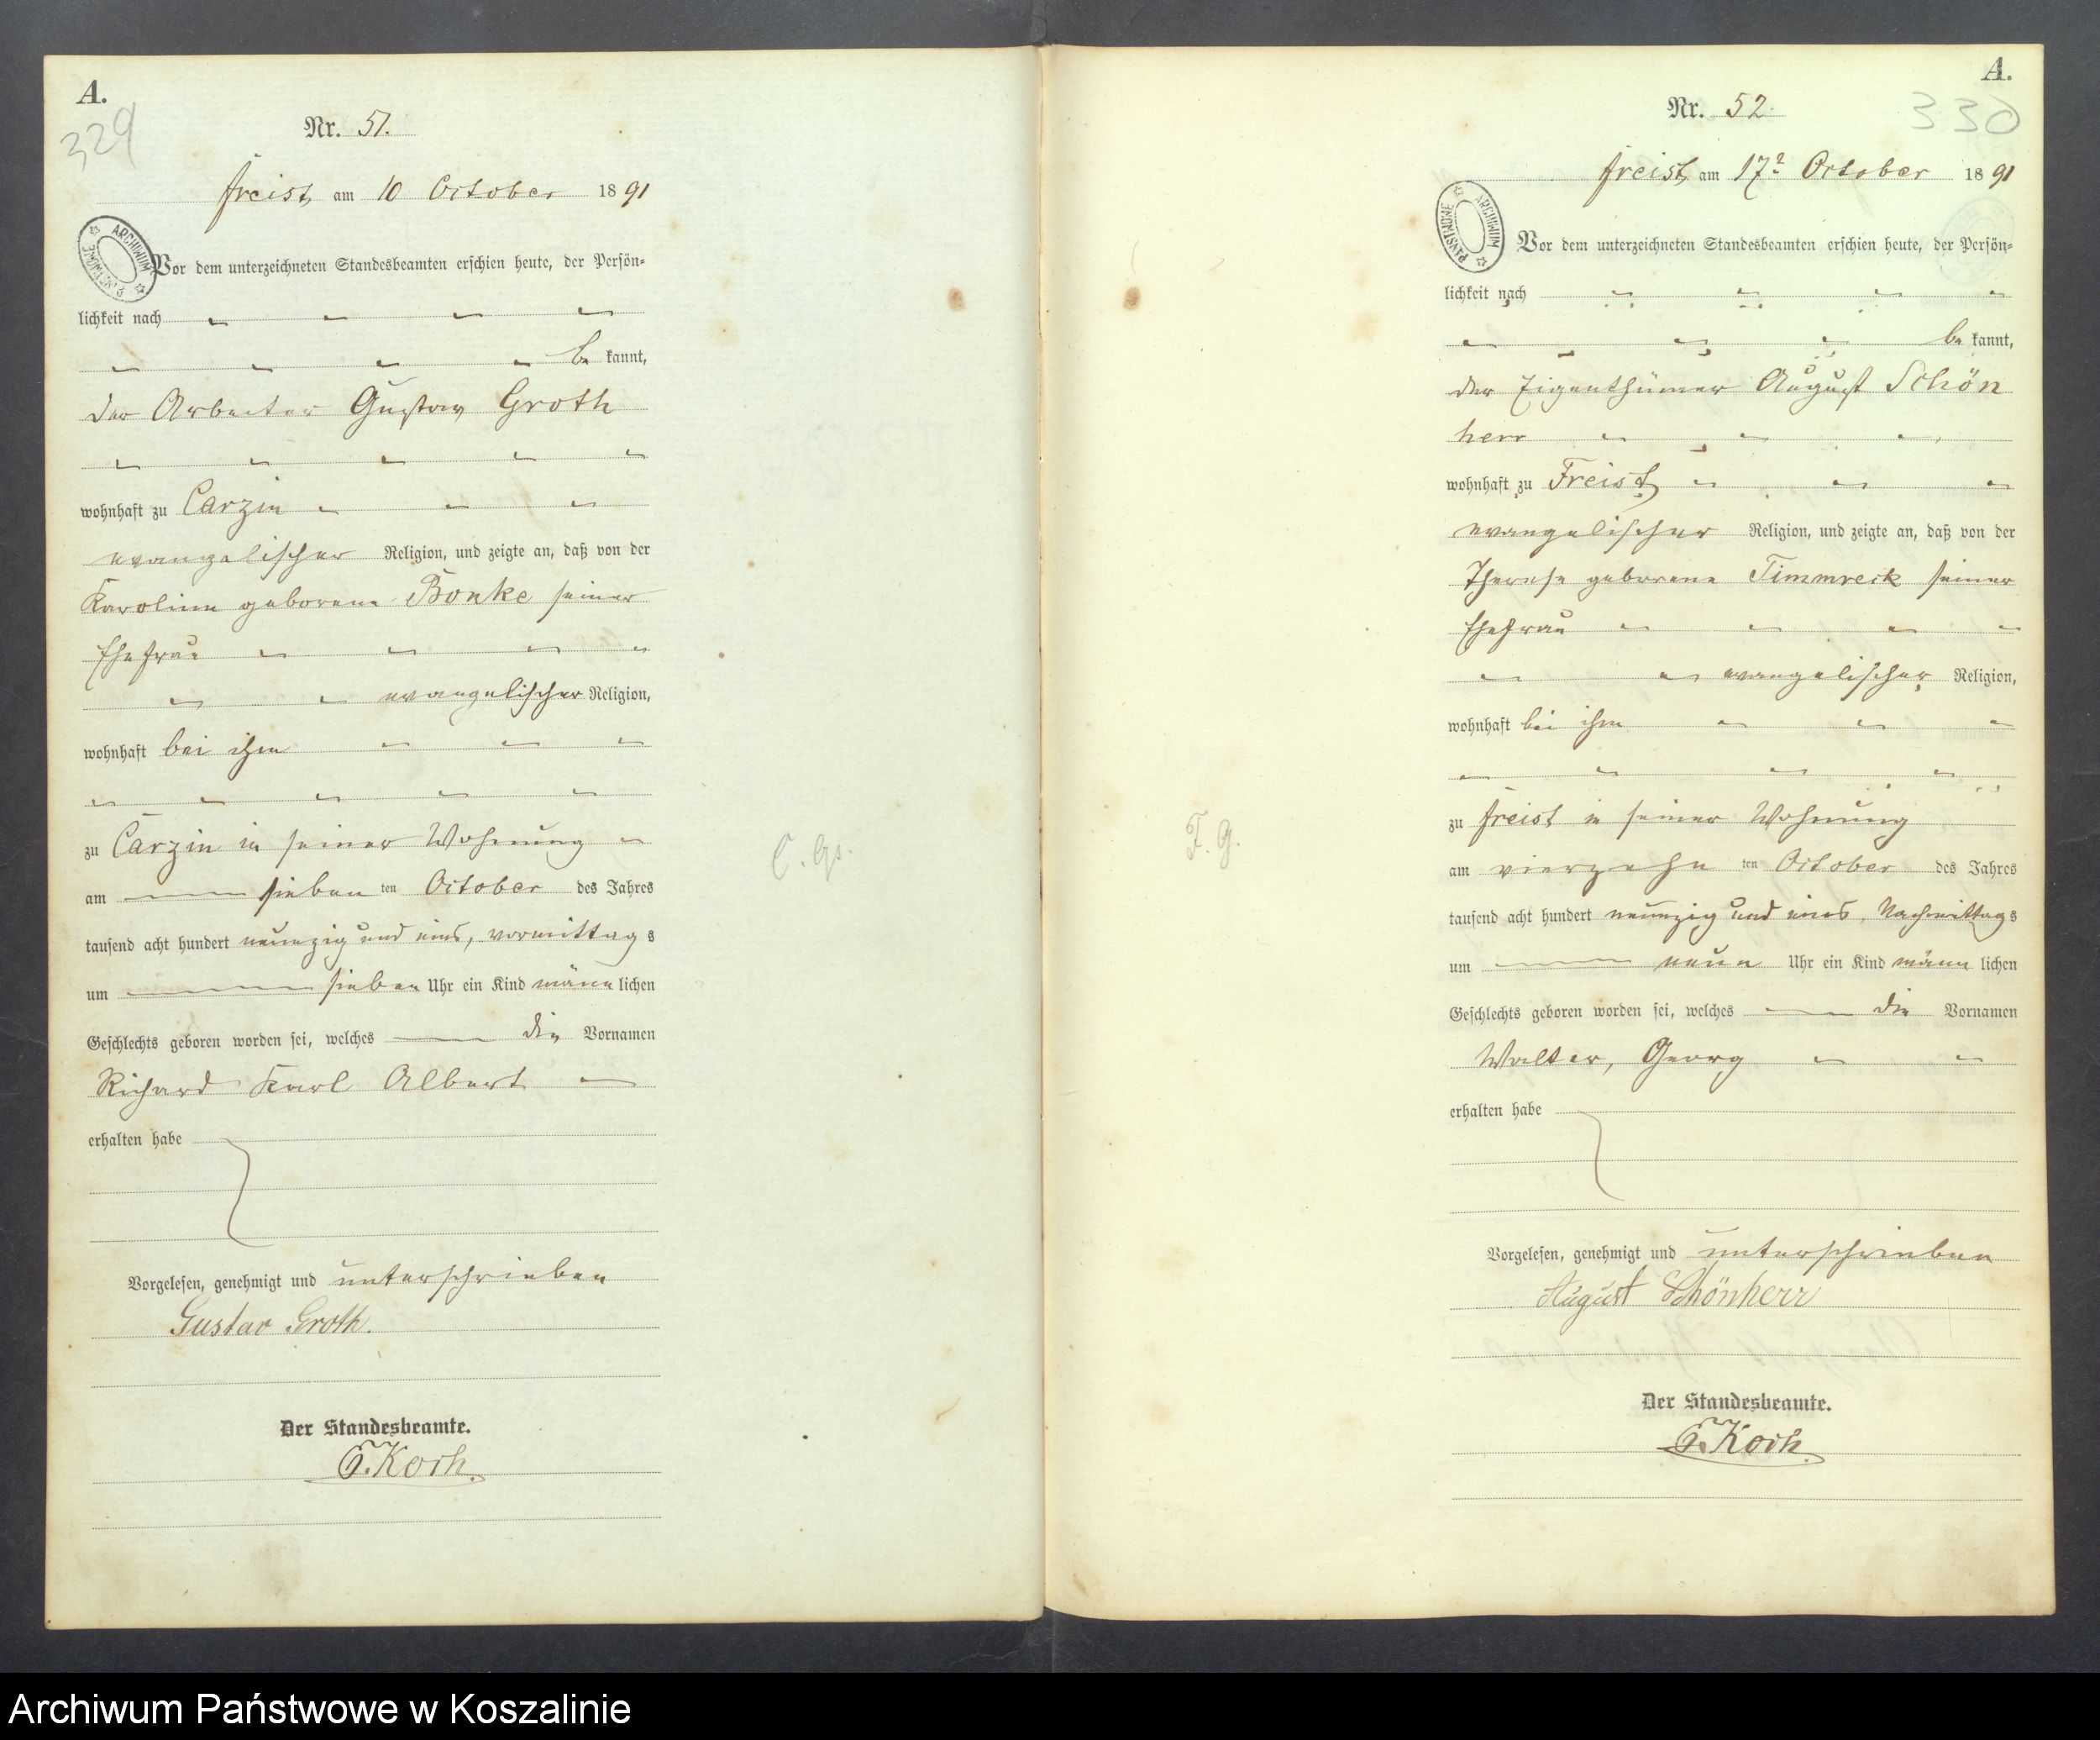 A.
329
Nr. 51.
Freist, am 10 October 1891
ARCHIWUM PAŃSTWOWE
Vor dem unterzeichneten Standesbeamten erschien heute, der Persön=
lichkeit nach
be kannt,
der Arbeiter Gustav Groth
wohnhaft zu Carzin
evangelischer Religion, und zeigte an, daß von der
Karoline geborene Bonke seiner
Ehefrau
evangelischer Religion,
wohnhaft bei ihm
zu Carzin in seiner Wohnung
am sieben ten October des Jahres
tausend acht hundert neunzig und eins, vormittag s
um sieben Uhr ein Kind männ lichen
Geschlechts geboren worden sei, welches die Vornamen
Richard Karl Albert
erhalten habe
Vorgelesen, genehmigt und unterschrieben
Gustav Groth.
Der Standesbeamte.
E. Koch.
C. Gs.
A.
330
Nr. 52
Freist, am 17. October 1891
ARCHIWUM PAŃSTWOWE
Vor dem unterzeichneten Standesbeamten erschien heute, der Persön=
lichkeit nach
be kannt,
der Eigenthümer August Schön
herr
wohnhaft zu Freist,
evangelischer Religion, und zeigte an, daß von der
Therese geborene Timmreck seiner
Ehefrau
evangelischer Religion,
wohnhaft bei ihm
zu Freist in seiner Wohnung
am vierzehn ten October des Jahres
tausend acht hundert neunzig und eins, Nachmittag s
um neun Uhr ein Kind männ lichen
Geschlechts geboren worden sei, welches die Vornamen
Walter, Georg
erhalten habe
Vorgelesen, genehmigt und unterschrieben
August Schönherr
Der Standesbeamte.
E. Koch.
F. G.
Archiwum Państwowe w Koszalinie